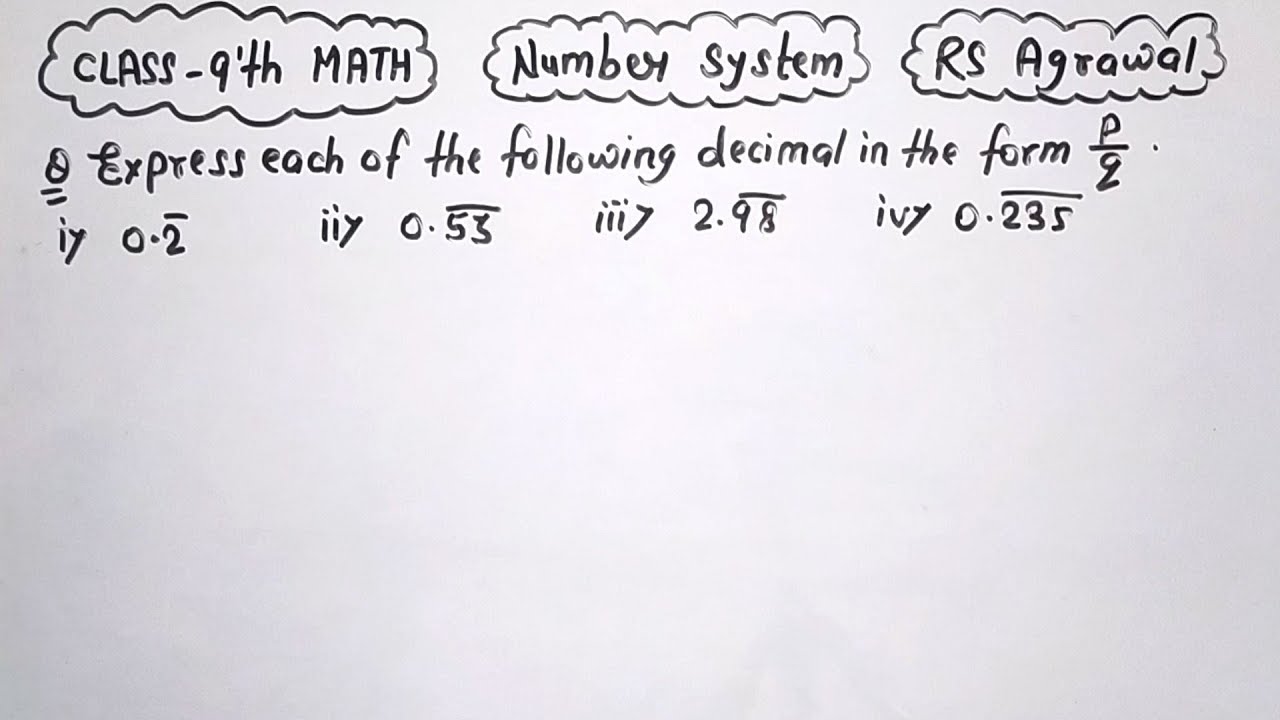 CLASS-9'th MATH Number System RS Agrawal
Q Express each of the following decimal in the form p/q.
i> 0.2̅ ii> 0.5̅3̅ iii> 2.9̅8̅ iv> 0.2̅3̅5̅